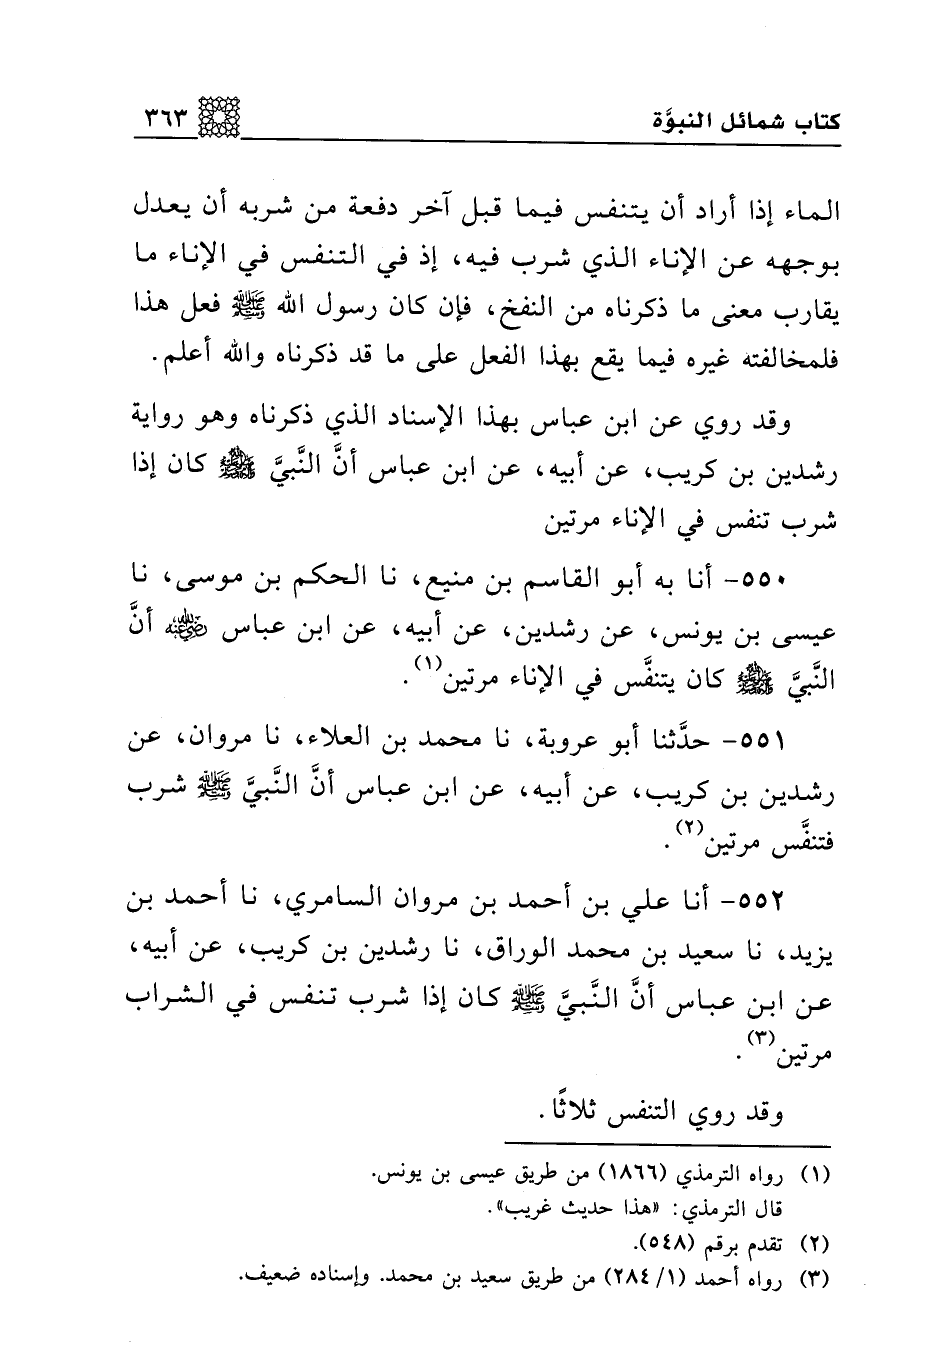 كتاب شمائل النبوَّة ٣٦٣
الماء إذا أراد أن يتنفس فيما قبل آخر دفعة من شربه أن يعدل
بوجهه عن الإناء الذي شرب فيه، إذ في التنفس في الإناء ما
يقارب معنى ما ذكرناه من النفخ، فإن كان رسول الله ﷺ فعل هذا
فلمخالفته غيره فيما يقع بهذا الفعل على ما قد ذكرناه والله أعلم.
وقد روي عن ابن عباس بهذا الإسناد الذي ذكرناه وهو رواية
رشدين بن كريب، عن أبيه، عن ابن عباس أنَّ النَّبيَّ ﷺ كان إذا
شرب تنفس في الإناء مرتين
٥٥٠- أنا به أبو القاسم بن منيع، نا الحكم بن موسى، نا
عيسى بن يونس، عن رشدين، عن أبيه، عن ابن عباس رضي الله عنه أنَّ
النَّبيَّ ﷺ كان يتنفَّس في الإناء مرتين(١).
٥٥١- حدَّثنا أبو عروبة، نا محمد بن العلاء، نا مروان، عن
رشدين بن كريب، عن أبيه، عن ابن عباس أنَّ النَّبيَّ ﷺ شرب
فتنفَّس مرتين(٢).
٥٥٢- أنا علي بن أحمد بن مروان السامري، نا أحمد بن
يزيد، نا سعيد بن محمد الوراق، نا رشدين بن كريب، عن أبيه،
عن ابن عباس أنَّ النَّبيَّ ﷺ كان إذا شرب تنفس في الشراب
مرتين(٣).
وقد روي التنفس ثلاثًا.
(١) رواه الترمذي (١٨٦٦) من طريق عيسى بن يونس.
قال الترمذي: «هذا حديث غريب».
(٢) تقدم برقم (٥٤٨).
(٣) رواه أحمد (١/ ٢٨٤) من طريق سعيد بن محمد. وإسناده ضعيف.